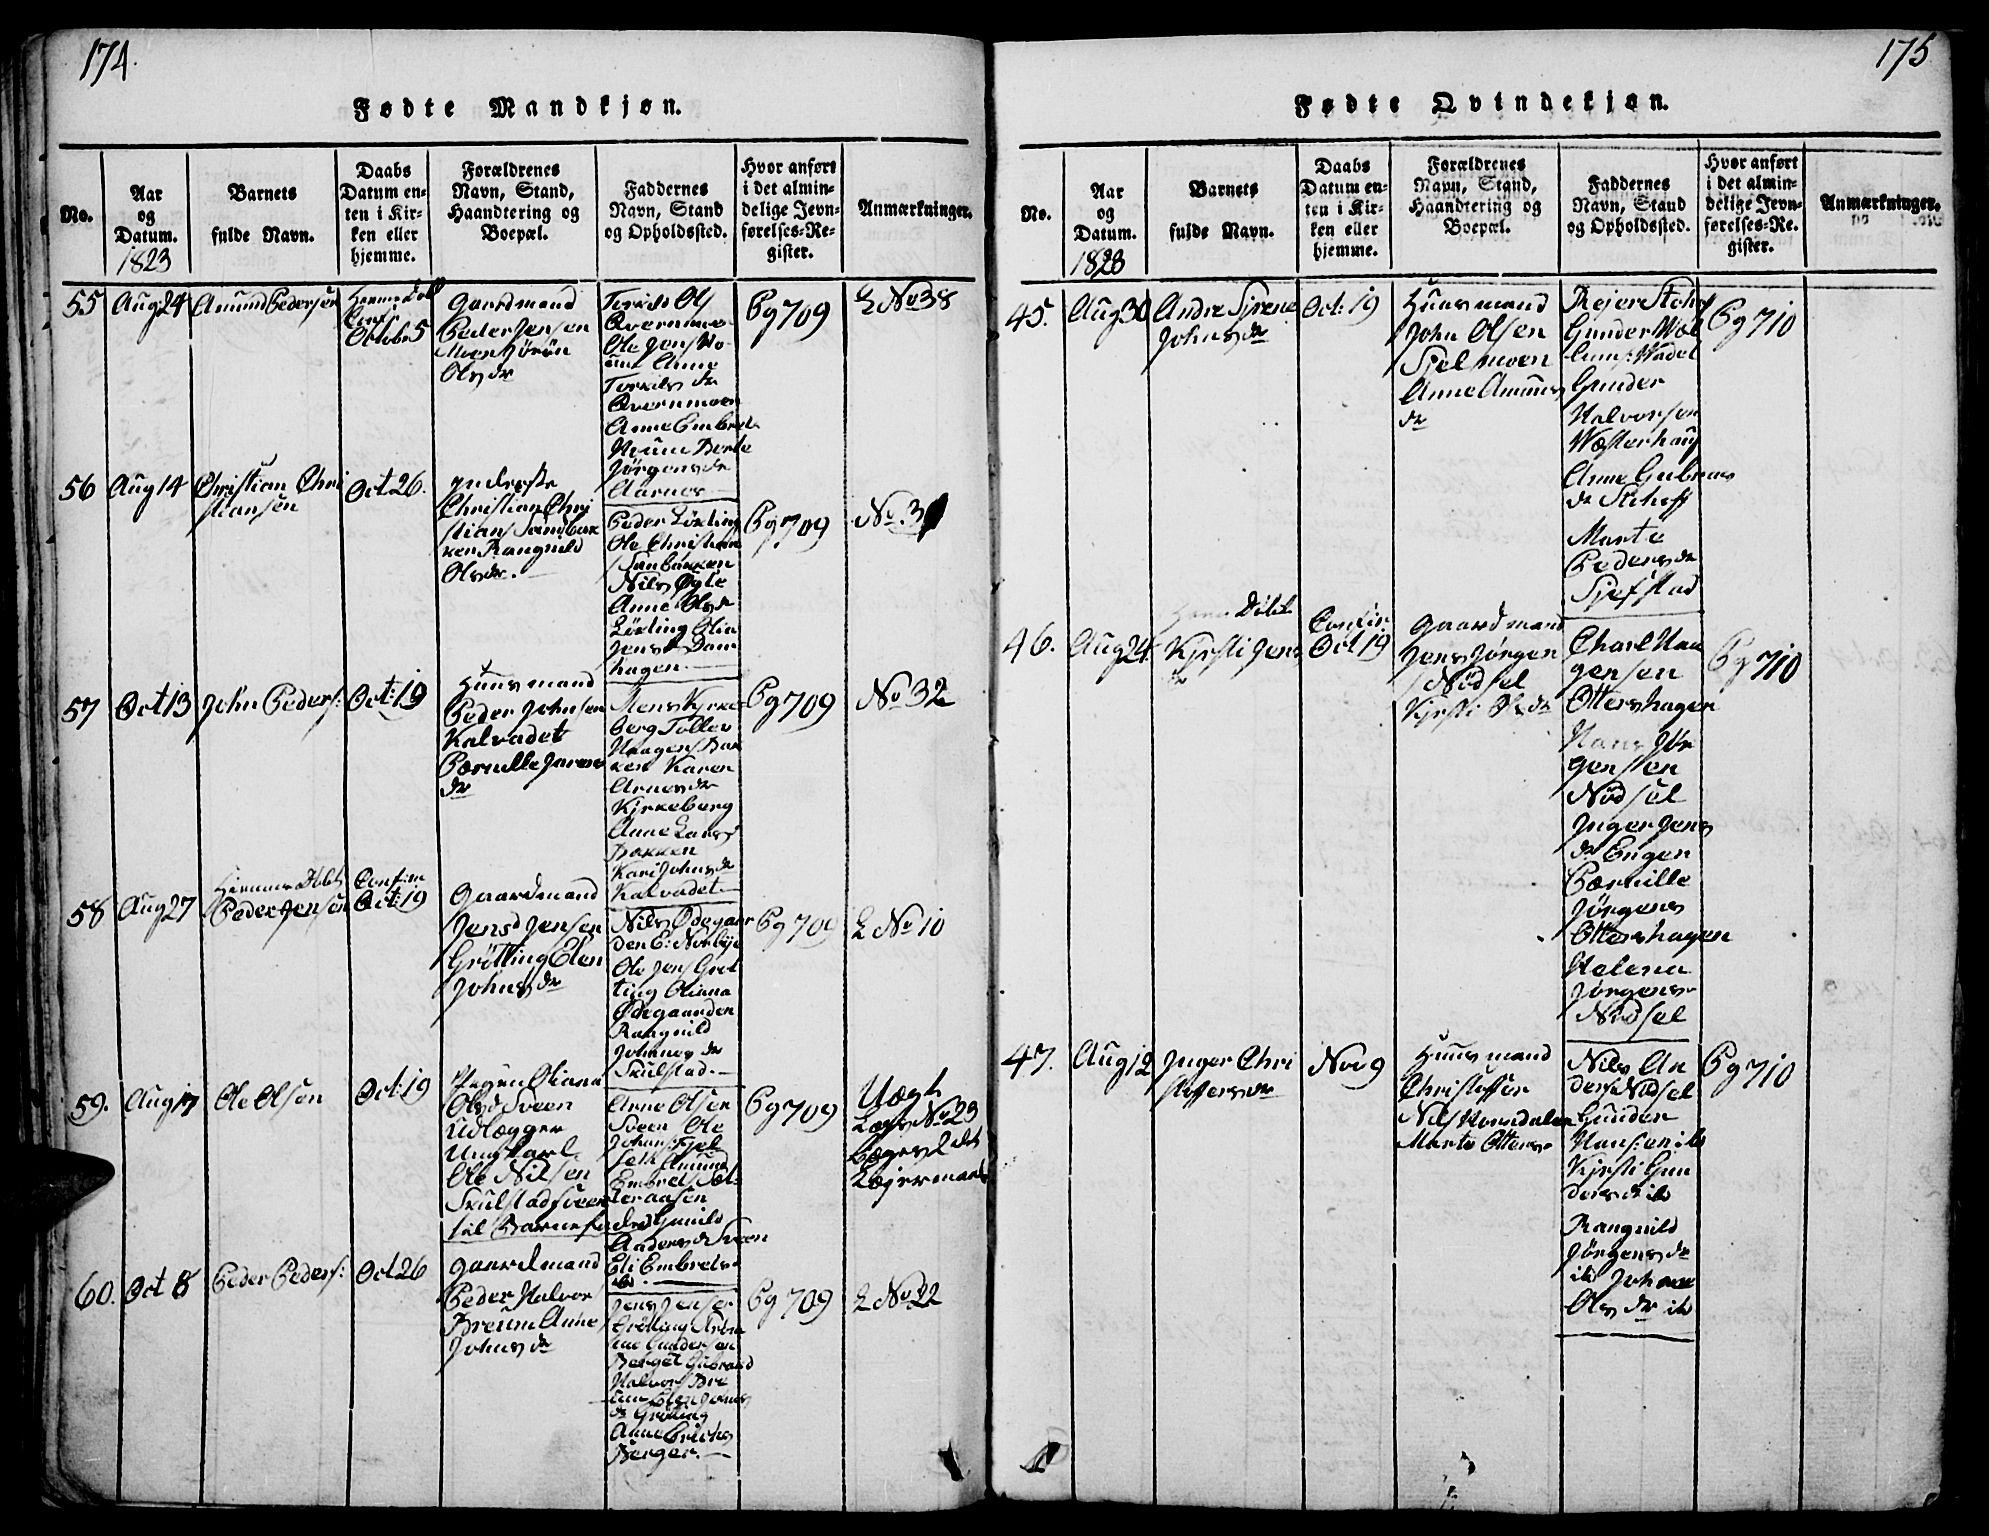 174.
Fødte Mandkjøn.
No.
Aar
og
Datum.
1823
Barnets
fulde Navn.
Daabs
Datum en-
ten i Kir-
ken eller
hjemme.
Forældrenes
Navn, Stand,
Haandtering og
Boepæl.
Faddernes
Navn, Stand
og Opholdssted.
Hvor anført
i det almin-
delige Jevn-
førelses-Re-
gister.
Anmærkninger.
55
Aug 24
Amund Pedersen
Octobr 5
Gaardmand
Peder Jensen
Olsdr
Ole Jens
Anne
Torkilsdr
Qvernmoen
Anne Embret
Jørgensdr
Aarnes
Pg 709
L No 38
56
Aug 14
Christian Chri
stiansen
Oct 26.
Inderste
Christian Chri
stians Sandbak
ken Rangnild
Olsdr.
Peder Løxting
Ole Christians
Sanbakken
Nils Øgle
Anne Olsdr
Løxting Olia
Jensd Dam
hagen.
Pg 709
57
Oct 13
John Peders:
Oct: 19
Huusmand
Peder Johnsen
Kalvadet
Pernille
dr
Mens Kjrke
berg Tollev
Haagens Bak
ken Karen
Arnesdr
Kjrkeberg
Anne Lars
Bakken
Kari Johnsdr
Kalvadet
Pg 709
No 32
58
Aug 27
Hiemmedøbt
Peder Jensen
Confirm
Oct: 19
Gaardmand
Jens Jensen
Grøtting Elen
Johnsdr
Nils Ødegaar
den E: Norbye
Ole Jens Grøt
ting Oliana
Ødegaarden
Rangnild
Johnnesdr
Skulstad.
Pg 709
L No 10
59.
Aug 17
Ole Olsen
Oct: 19
Pigen Oliana
Olsd Sveen
Udlægger
Ungkarl
Ole Nilsen
Skulstadsveen
til Barnefader
Arne Olsen
Sveen Ole
Amund
Embrets
teraasen
Gunild
Andersdr Sveen
Eli Embrets
Pg 709
No 23
60.
Oct 8
Peder Peders:
Oct 26
Gaardmand
Peder Halvor
Breum Anne
Johnsdr
Jens Jensen
Grøtting
Gundersen
Berget Gulbrand
Halvors Bre
um Elen Johns
dr Grøtting
Anne Erichs
Berget.
Pg 709
L No 22
175
Fødte Qvindekjøn.
No.
Aar
og
Datum.
1823
Barnets
fulde Navn.
Daabs
Datum en-
ten i Kir-
ken eller
hjemme.
Forældrenes
Navn, Stand,
Haandtering og
Boepæl.
Faddernes
Navn, Stand
og Opholdssted.
Hvor anført
i det almin-
delige Jevn-
førelses-Re-
gister.
Anmærkninger.
45.
Aug 30
Andre Sjrene
Johnsdr
Oct: 19
Huusmand
John Olsen
Sjelmoen
Anne Amuns
dr
Gunder
Halvorsen
Westerhaug
Anne Gulbrans
dr
Marte
Pedersdr
Sjefstad
Pg 710
46.
Aug 24
Døbt
Kjrsti Jens
dr
Confir
Oct 19
Gaardmand
Jens Jørgen
s Nødsel
Kjrsti Olsdr
Charl Haa
gensen
Ottershagen
Hans Jør
gensen
Nødsel
Inger Jens
dr Engen
Pernille
Jørgens
Ottershagen
Helena
Jørgens
Nødsel
Pg 710
47.
Aug 12
Inger Chri
stoffersdr
Nov 9
Huusmand
Christoffer
Nils Horndalen
Marte Otters
Nils An
ders Nødsel
Gunder
Hans: en ib
Kjrsti Gun
dersdr ib
Rangnild
Jørgensdr
ib Johane
Olsdr ib
Pg 710